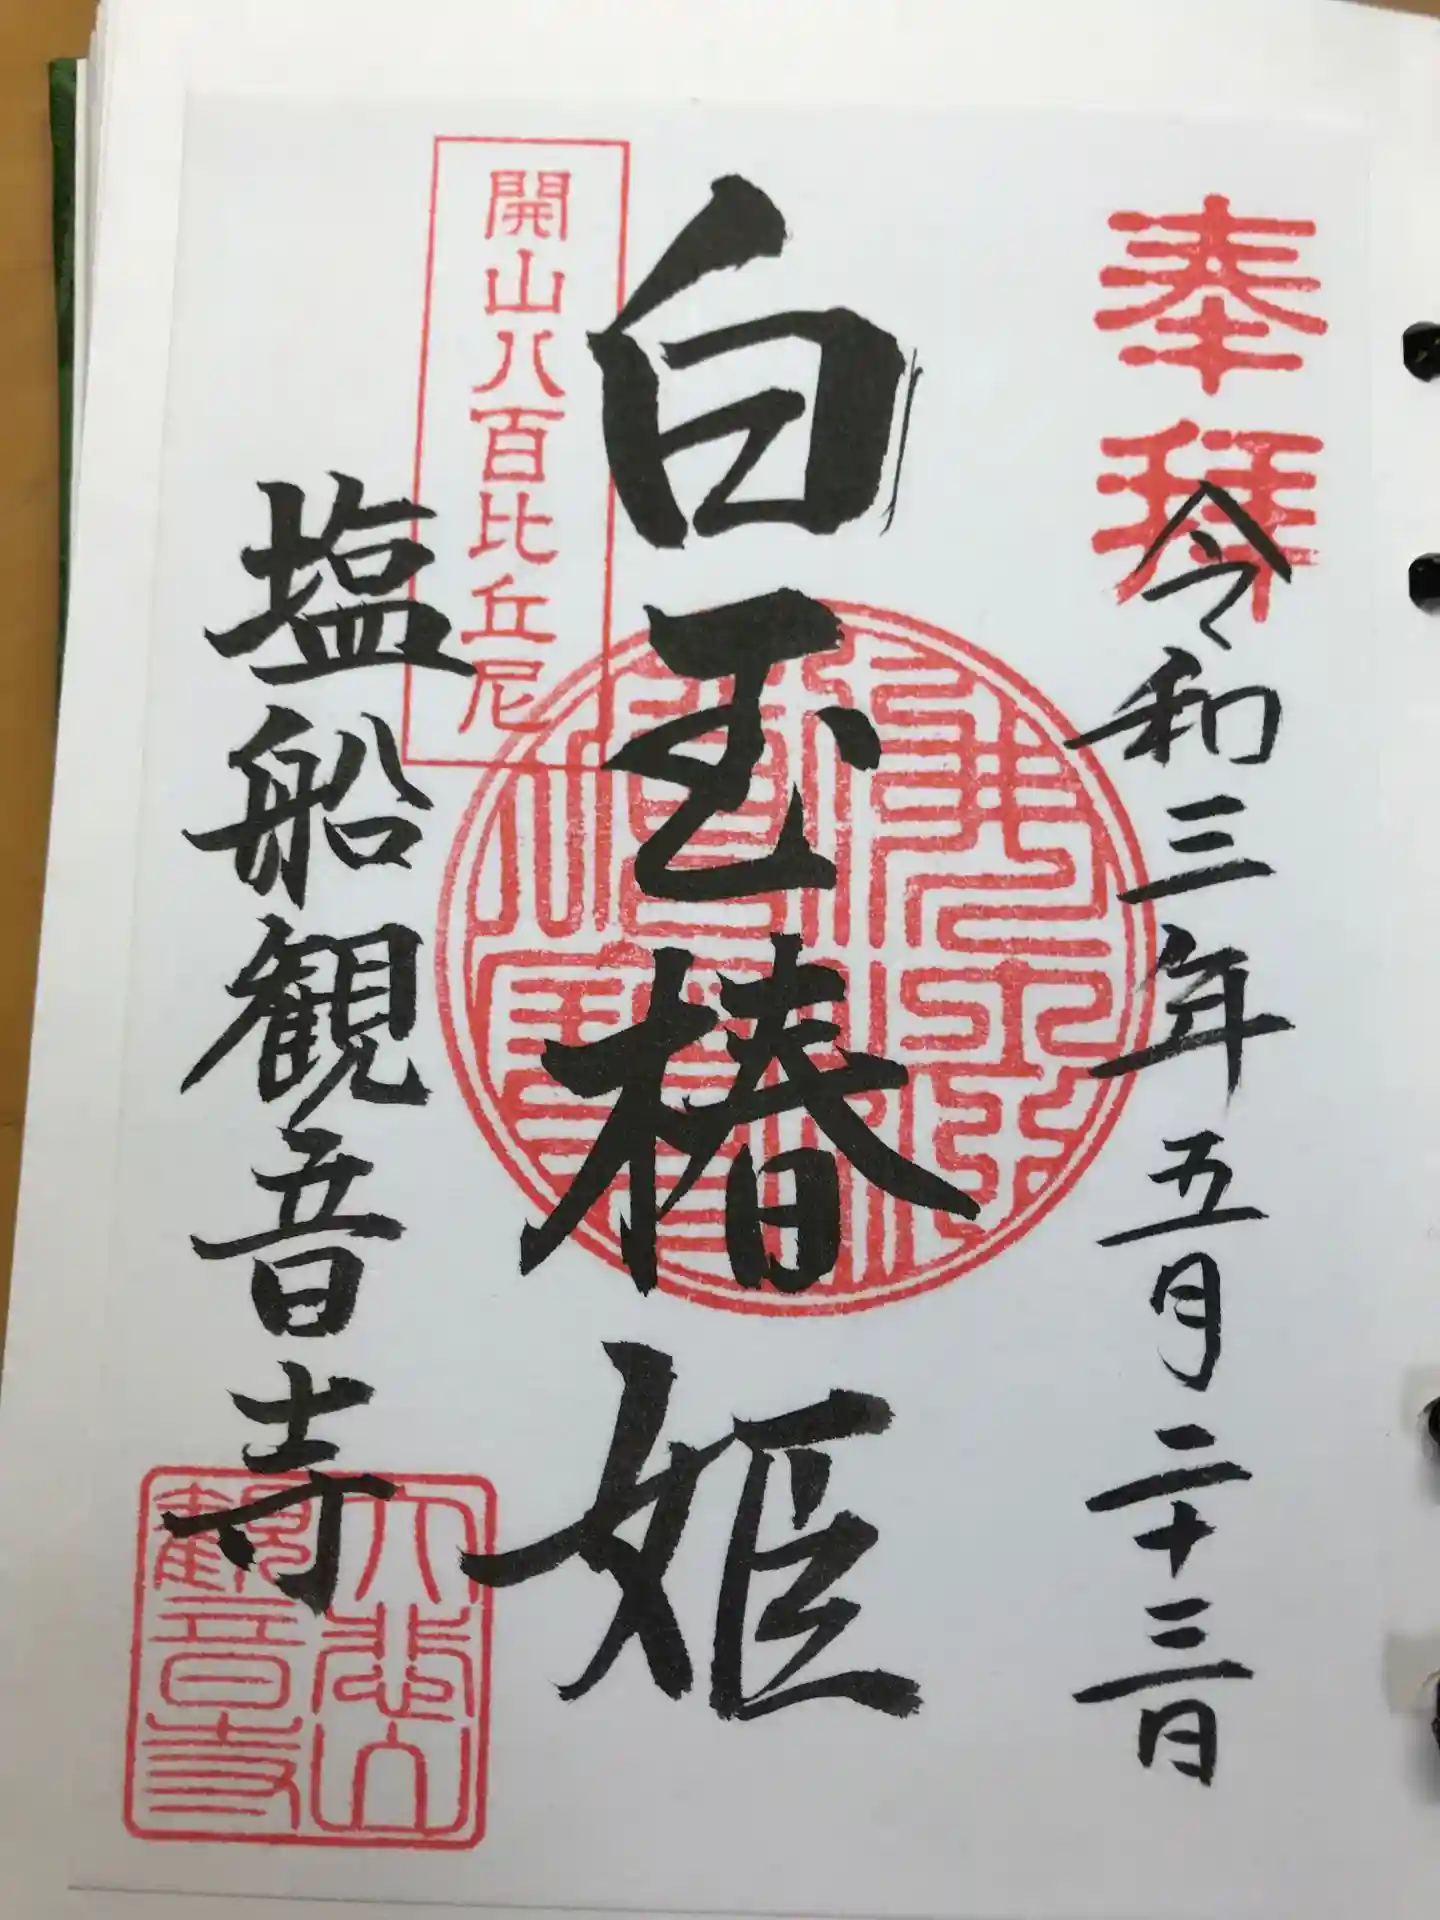 奉拝
令和三年五月二十三日
白玉椿姫
開山八百比丘尼
塩船観音寺
大悲山
観音寺